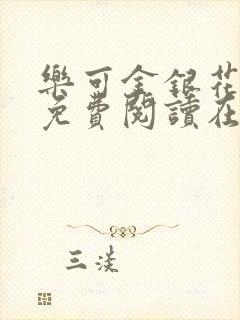 樂可金銀花
免費閱讀在
三淡